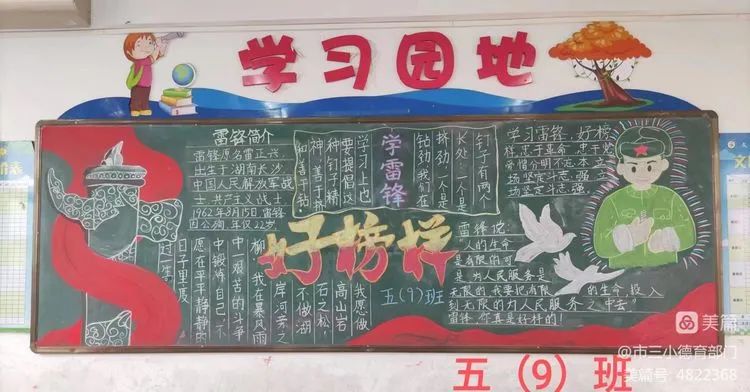 学习园地
雷锋简介
雷锋原名雷正兴
出生于湖南长沙
中国人民解放军战
士 共产主义战士
1962年8月15日 雷锋
因公殉 年仅22岁
学雷锋
好榜样
五(9)班
钉子有两个
长处:一个是
挤劲,一个是
钻劲,我们在
学习上,也
要提倡这
种钉子精
神,善于挤
和善于钻.
学习雷锋,好榜
样忠于革命,忠于党
爱憎分明不忘本 立
场坚定斗志强 立
场坚定斗志强.
雷锋说:
"人的生命
是有限的可
是 为人民服务是
无限的 我要把有限 的生命,投入
到无限的为人民服务之中去"
雷锋 你真是好样的!
我愿做
高山岩
石之松
不做湖
岸河旁之
柳 我愿在暴风雨
中 艰苦的斗争
中锻炼自己 不
愿在平平静静的
日子里度
过一生
美篇
@市三小德育部门
美篇号 4822368
五（9）班